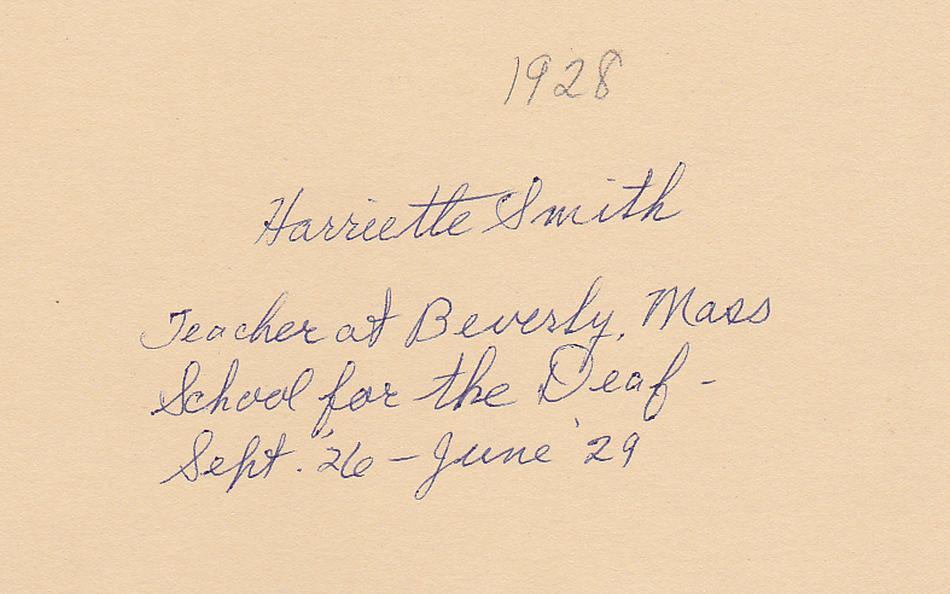 1928
Harriette Smith
Teacher at Beverly, Mass
School for the Deaf -
Sept. '26 - June '29